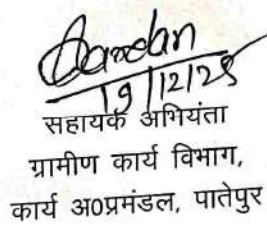 19/12/25
सहायक अभियंता
ग्रामीण कार्य विभाग,
कार्य अ०प्रमंडल, पातेपुर